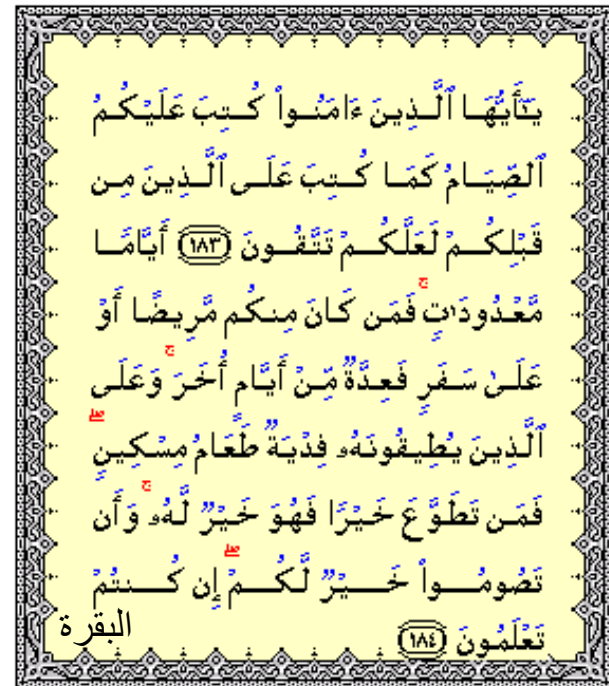 يَـٰٓأَيُّهَا ٱلَّذِينَ ءَامَنُوا۟ كُتِبَ عَلَيْكُمُ
ٱلصِّيَامُ كَمَا كُتِبَ عَلَى ٱلَّذِينَ مِن
قَبْلِكُمْ لَعَلَّكُمْ تَتَّقُونَ ١٨٣ أَيَّامًا
مَّعْدُودَٰتٍ ۚ فَمَن كَانَ مِنكُم مَّرِيضًا أَوْ
عَلَىٰ سَفَرٍ فَعِدَّةٌ مِّنْ أَيَّامٍ أُخَرَ ۚ وَعَلَى
ٱلَّذِينَ يُطِيقُونَهُۥ فِدْيَةٌ طَعَامُ مِسْكِينٍ ۖ
فَمَن تَطَوَّعَ خَيْرًا فَهُوَ خَيْرٌ لَّهُۥ ۚ وَأَن
تَصُومُوا۟ خَيْرٌ لَّكُمْ ۖ إِن كُنتُمْ
تَعْلَمُونَ ١٨٤
البقرة